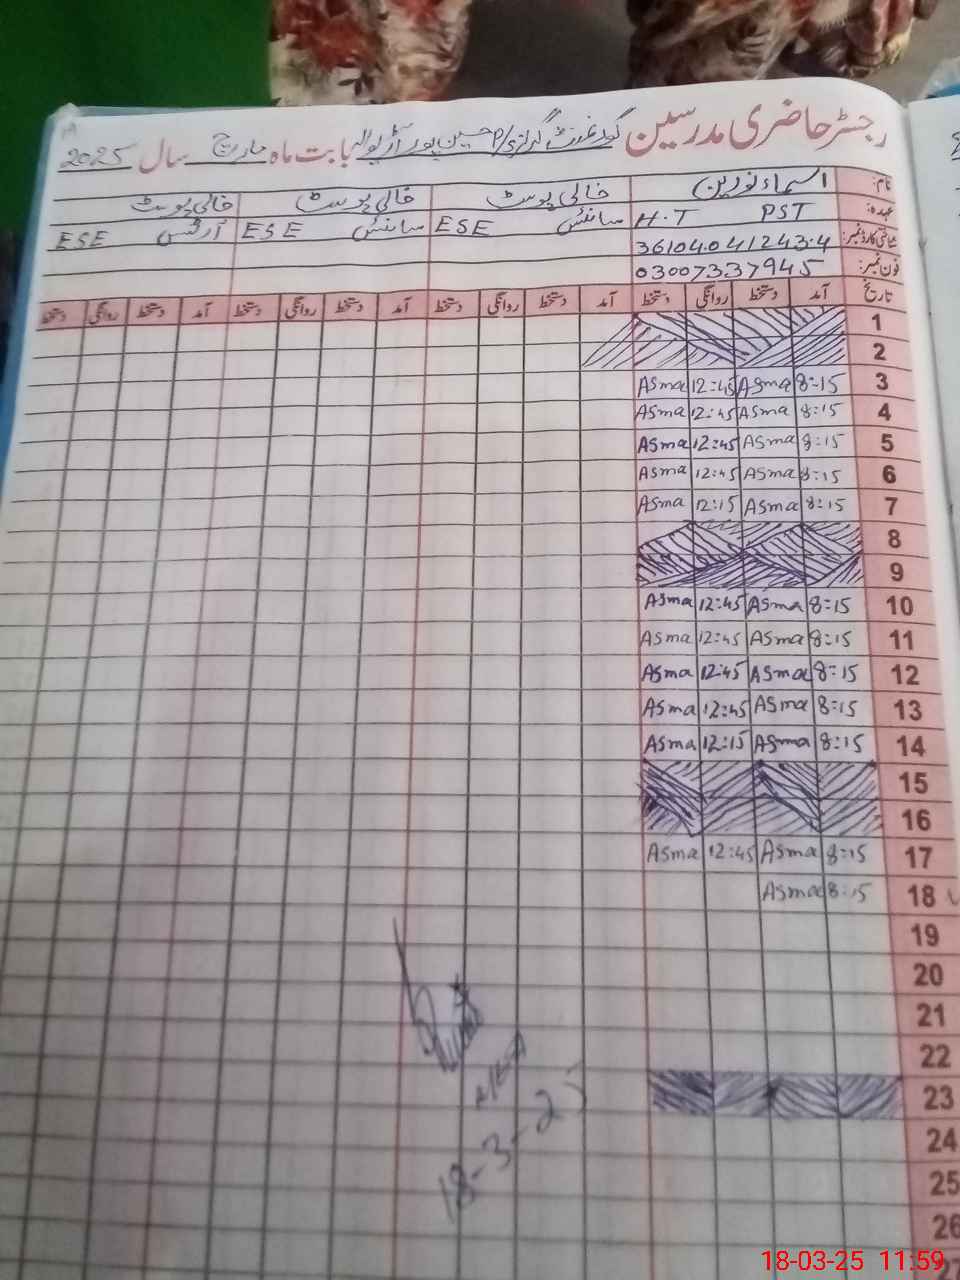 رجسٹر حاضری مدرسین گورنمنٹ گرلز P/S حسین پور آڑیوالہ بابت ماہ مارچ سال 2025
نام: اسماء نورین خالی پوسٹ خالی پوسٹ خالی پوسٹ
عہدہ: PST H.T سائنس ESE سائنس ESE آرٹس ESE
شناختی کارڈ نمبر: 361040412434
فون نمبر: 03007337945
تاریخ آمد دستخط روانگی دستخط آمد دستخط روانگی دستخط آمد دستخط روانگی دستخط آمد دستخط روانگی دستخط
1
2
3 8:15 Asma 12:45 Asma
4 8:15 Asma 12:45 Asma
5 8:15 Asma 12:45 Asma
6 8:15 Asma 12:45 Asma
7 8:15 Asma 12:15 Asma
8
9
10 8:15 Asma 12:45 Asma
11 8:15 Asma 12:45 Asma
12 8:15 Asma 12:45 Asma
13 8:15 Asma 12:45 Asma
14 8:15 Asma 12:15 Asma
15
16
17 8:15 Asma 12:45 Asma
18 8:15 Asma
19
20
21
22
23
24
25
26
27
18-3-25
18-03-25 11:59